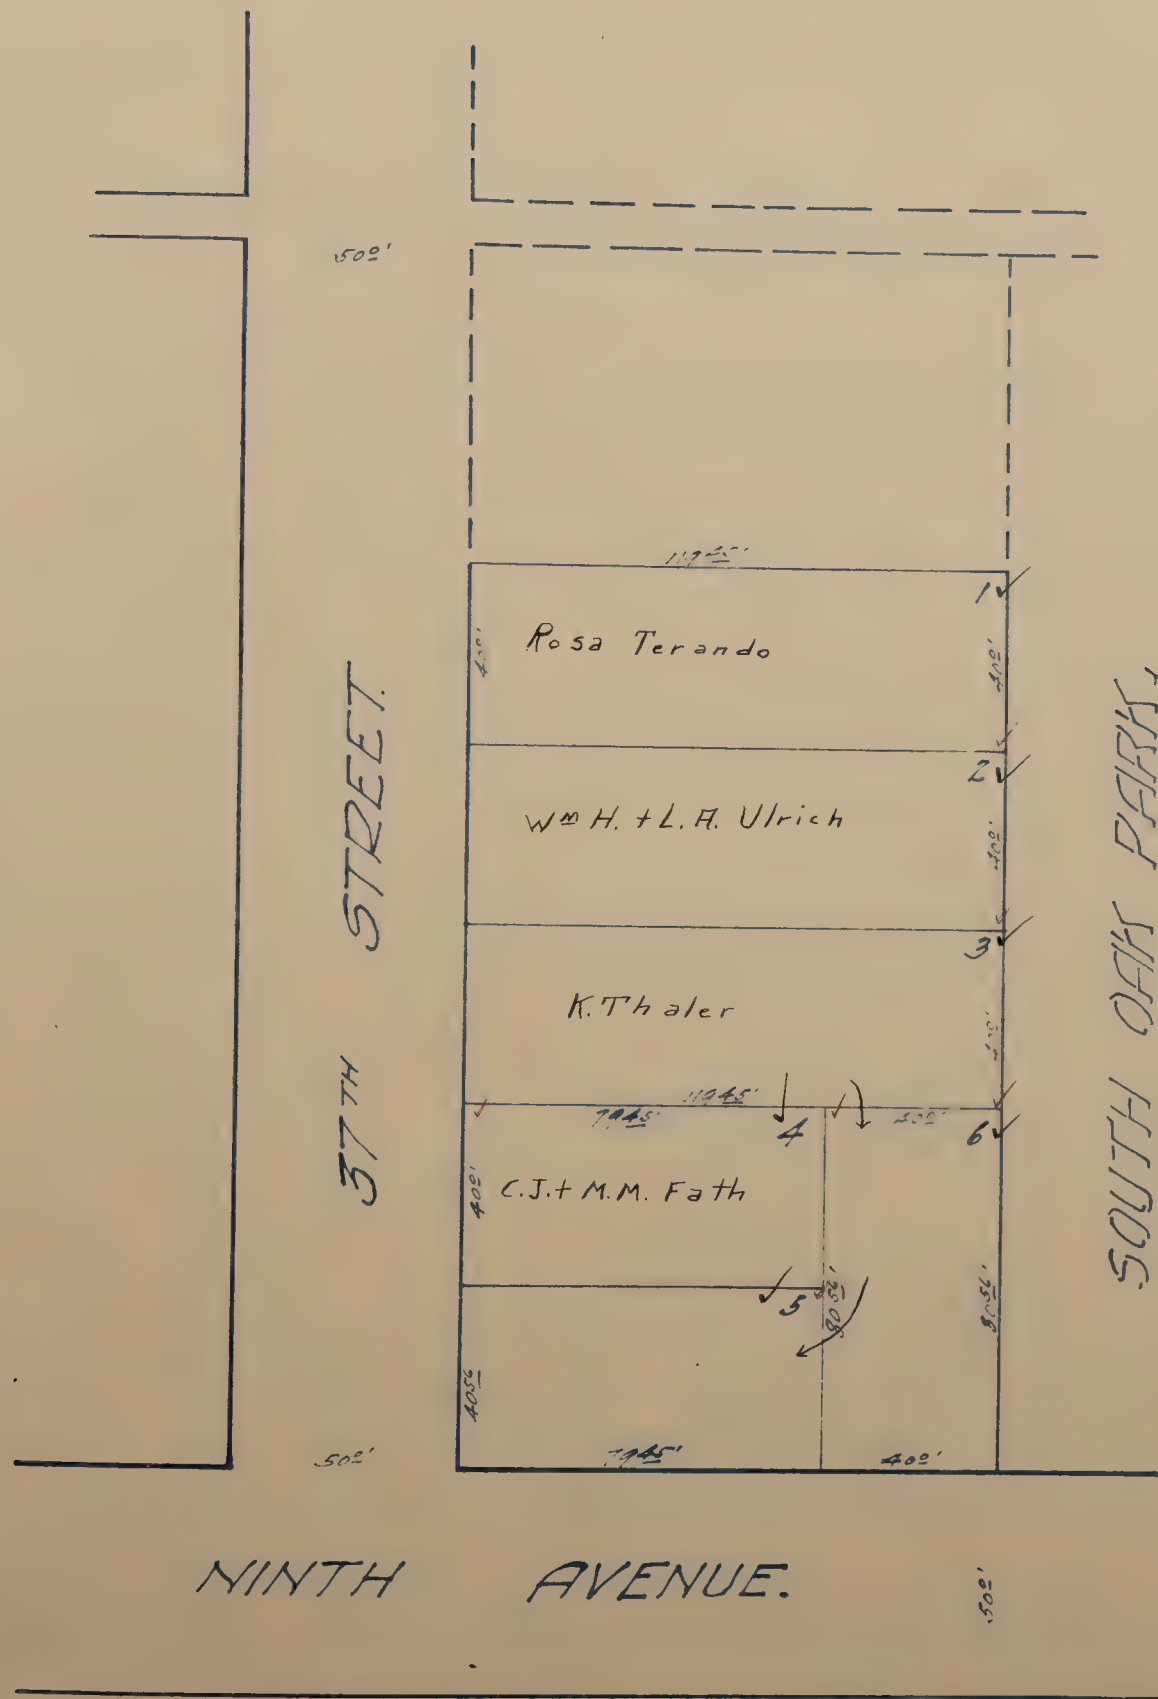 50º'
119 45'
1
Rosa Terando
40º'
40º'
2
Wm H. + L.A. Ulrich
40º'
3
K. Thaler
40º'
119 45'
79 45'
4
40º'
6
C.J. + M.M. Fath
40º'
5
80 56'
80 56'
40 56
50º'
79 45'
40º'
37TH STREET.
SOUTH OAK PARK.
NINTH AVENUE.
50º'